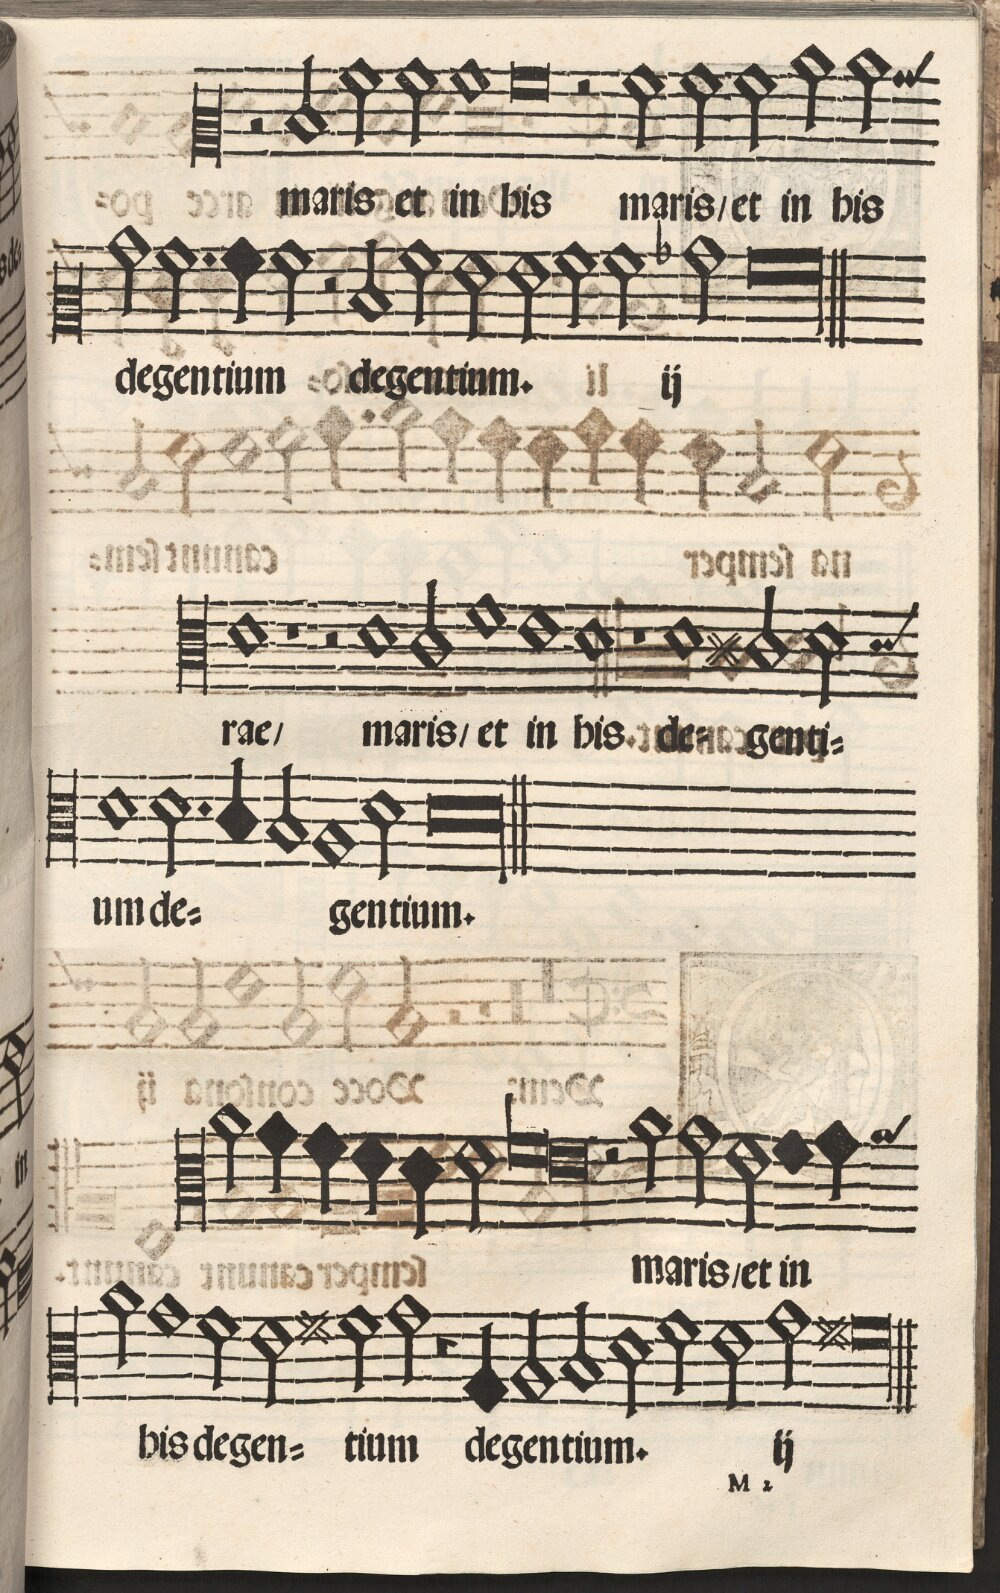 maris et in his maris/et in his
degentium degentium. ij
rae/ maris/et in his de= genti=
um de= gentium.
maris/et in
his degen= tium degentium. ij
M 2